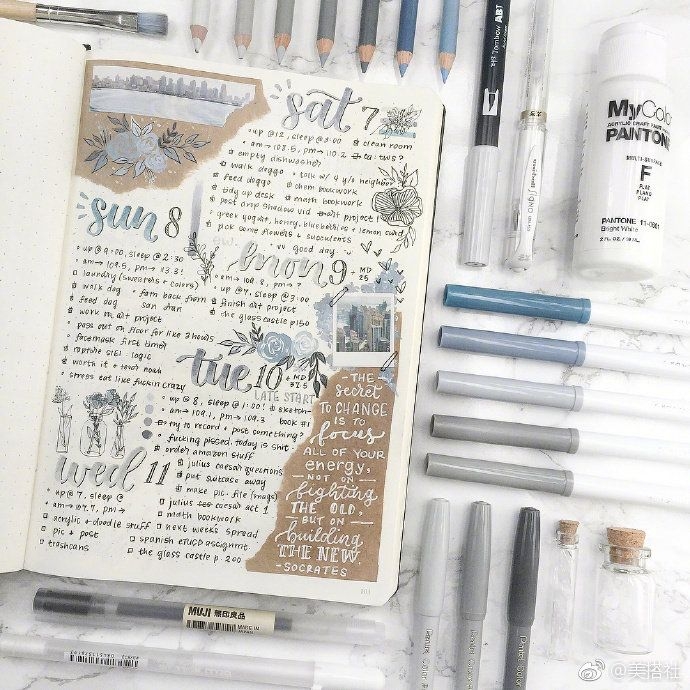 sat 7
• up @ 12, sleep @ 3:00
clean room
• am → 108.5, pm → 110.2
empty dishwasher
walk doggo
• talk w/ 4 y/o neighbor
feed doggo
chem bookwork
tidy up desk
math bookwork
post amp shadow vid
art project
• greek yogurt, honey, blueberries + lemon curd
pick some flowers + succulents
good day
sun 8
• up @ 9:00, sleep @ 2:30
• am → 109.5, pm →
laundry (sweaters + colors)
walk dog
• fam back from
feed dog
san dran
work on art project
• pass out on floor for like 3 hours
facemask first time!
logic
worth it
• stress eat like fuckin crazy
ew.
mon 9
+ MD
25
• am → 108.8, pm → ?
• up @ 7, sleep @ 3:00
finish art project
the glass castle p 150
tue 10
+ MD
37.5
LATE START
• up @ 8, sleep @ 1:00!
sketch-
• am → 109.1, pm → 109.3
book #1
try to record + post something?
• fucking pissed. today is shit.
order amazon stuff
julius caesar questions
put suitcase away
make pic. file (mags)
wed 11
• up @ 7, sleep @
• am → 107.7, pm →
julius caesar act 1
math bookwork
acrylic + doodle stuff
next weeks spread
pic + post
spanish
assignmt.
trashcans
the glass castle p. 200
- THE -
secret
TO CHANGE
IS TO
focus
ALL OF YOUR
energy,
NOT ON
fighting
THE OLD,
BUT ON
building
THE NEW.
- SOCRATES
Tombow ABT
MyColor
ACRYLIC CRAFT PAINT
PANTONE
MULTI-SURFACE
F
FLAT
PLANO
PLAT
PANTONE 11-0601
Bright White
2 FL. OZ / 59 mL
MUJI 無印良品
MADE IN
JAPAN
Pentel Color P
Pentel Color P
Pentel Color
@美搭社